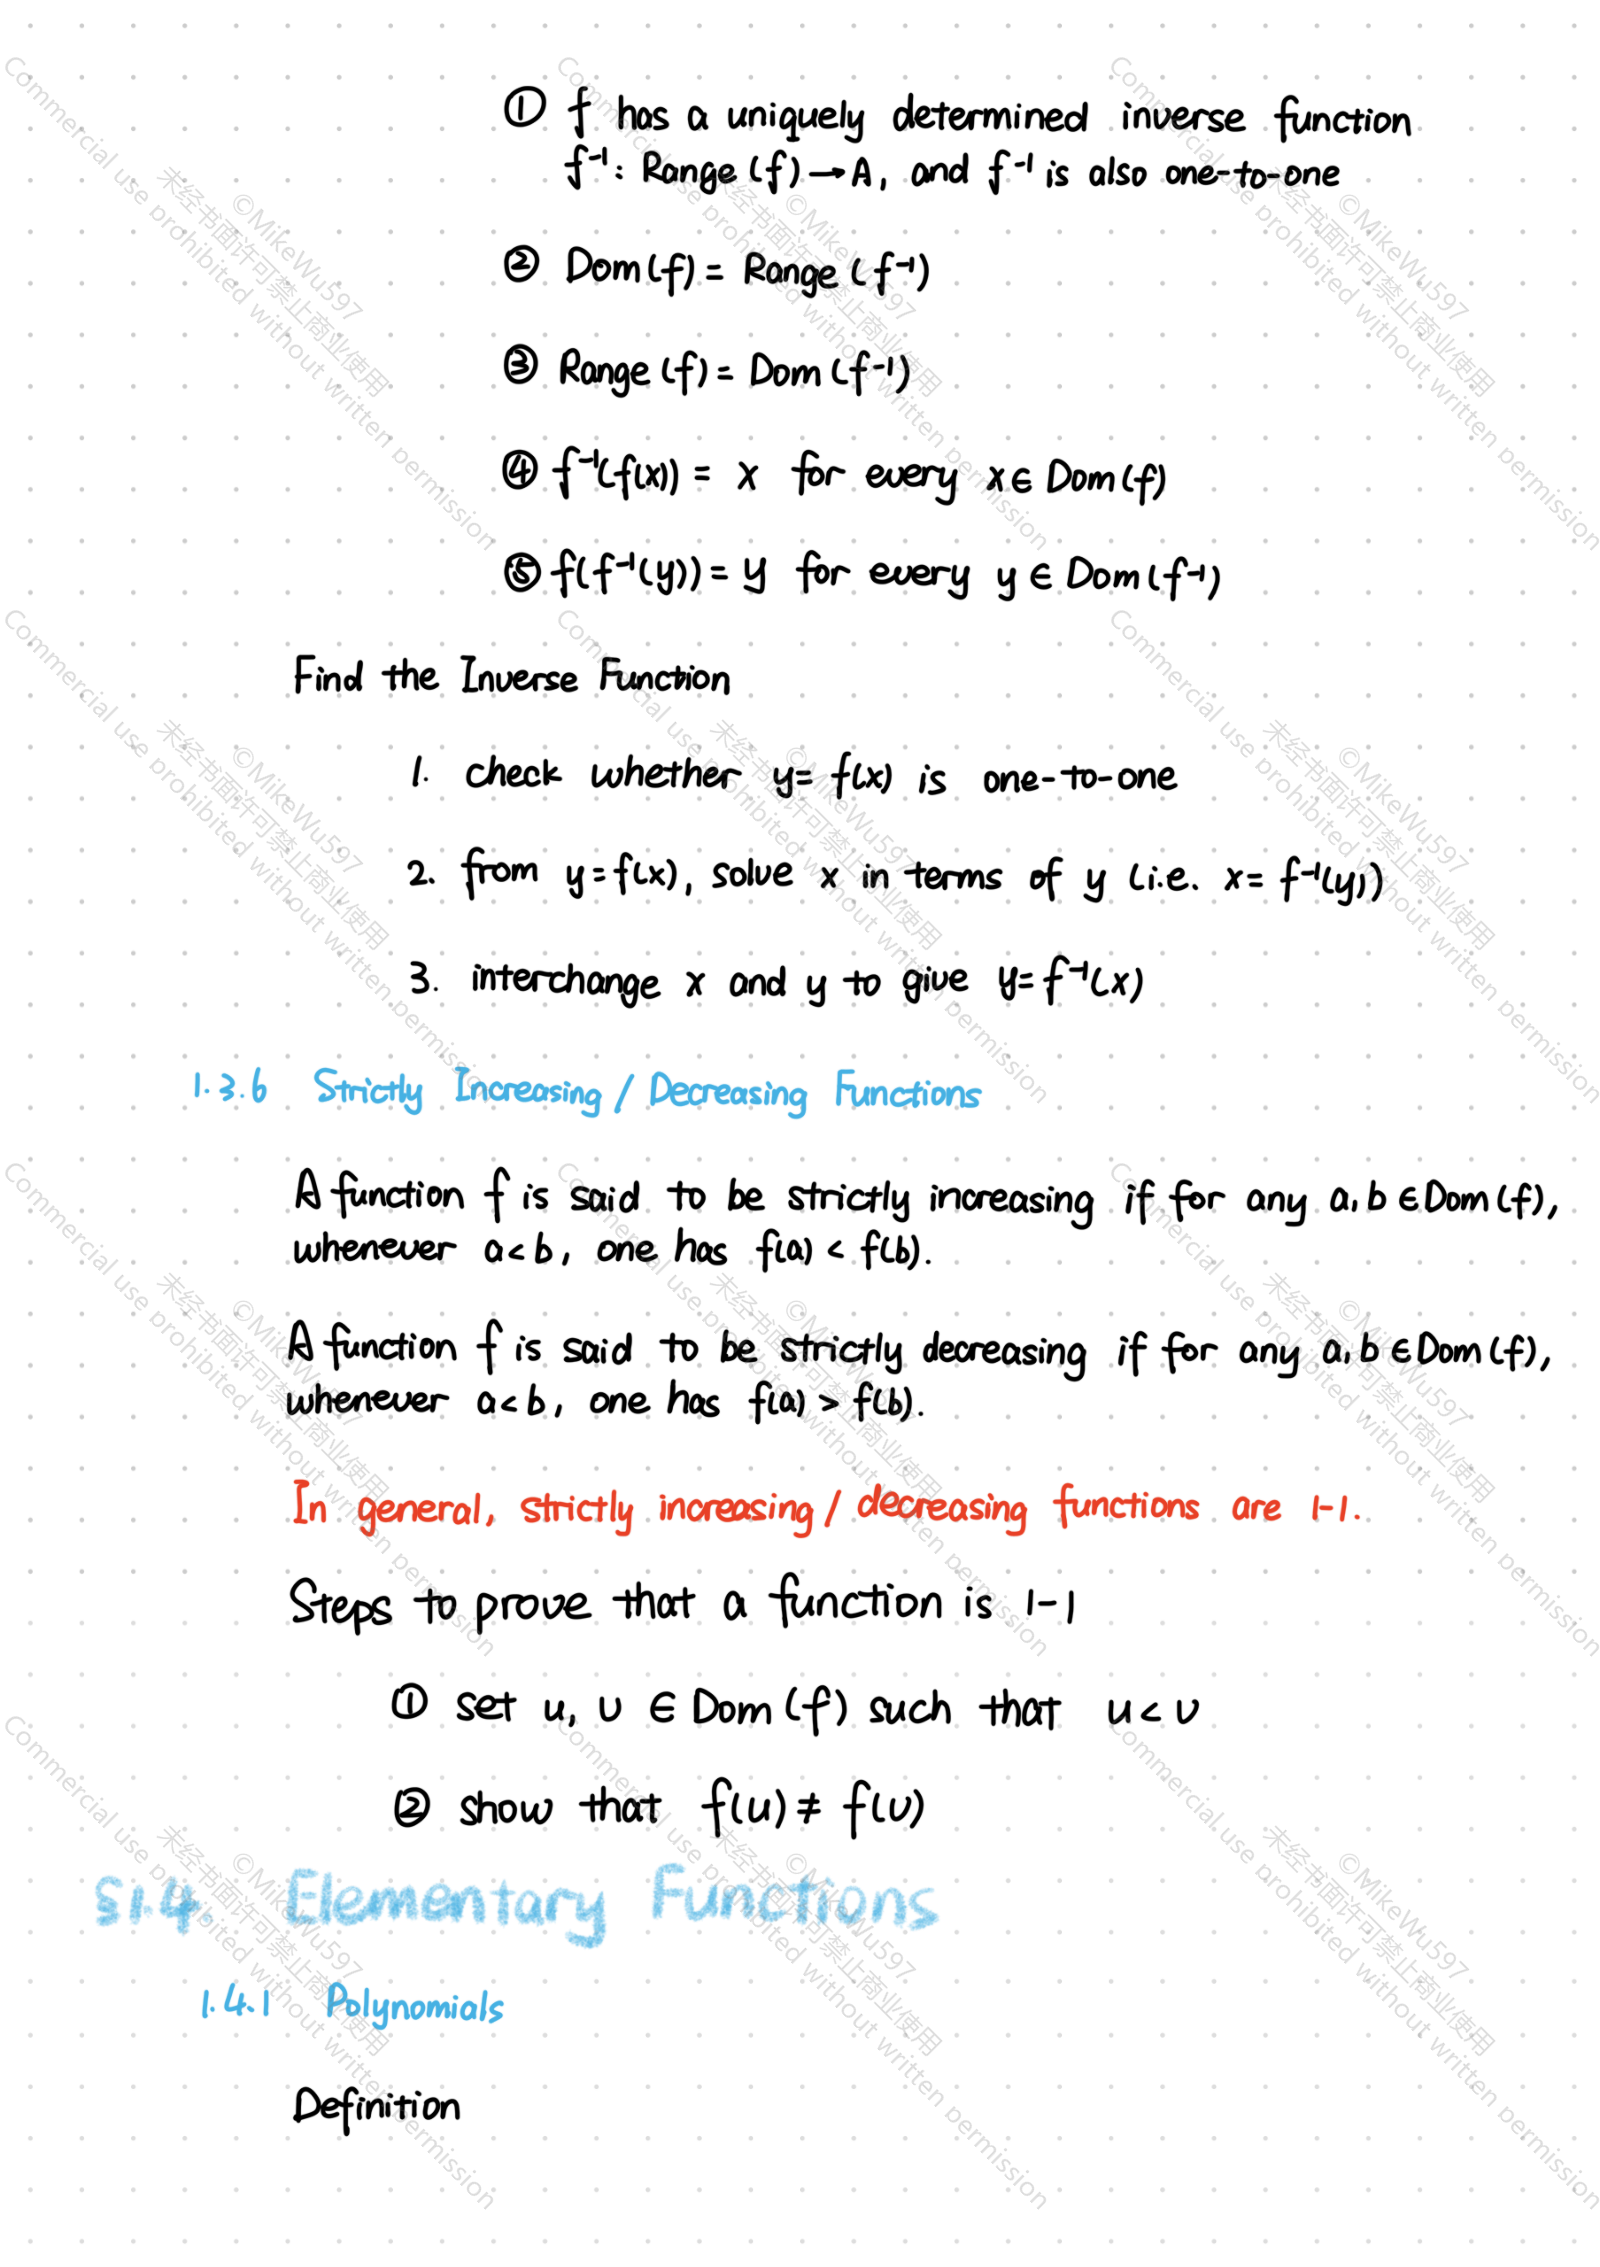 ① f has a uniquely determined inverse function
f⁻¹: Range (f) → A, and f⁻¹ is also one-to-one
② Dom(f) = Range (f⁻¹)
③ Range (f) = Dom (f⁻¹)
④ f⁻¹(f(x)) = x for every x ∈ Dom (f)
⑤ f(f⁻¹(y)) = y for every y ∈ Dom (f⁻¹)
Find the Inverse Function
1. check whether y= f(x) is one-to-one
2. from y = f(x), solve x in terms of y (i.e. x= f⁻¹(y))
3. interchange x and y to give y= f⁻¹(x)
1.3.6 Strictly Increasing / Decreasing Functions
A function f is said to be strictly increasing if for any a, b ∈ Dom (f),
whenever a < b, one has f(a) < f(b).
A function f is said to be strictly decreasing if for any a, b ∈ Dom (f),
whenever a < b, one has f(a) > f(b).
In general, strictly increasing / decreasing functions are 1-1.
Steps to prove that a function is 1-1
① set u, v ∈ Dom (f) such that u < v
② show that f(u) ≠ f(v)
§1.4. Elementary Functions
1.4.1 Polynomials
Definition
©MikeWu597
未经书面许可禁止商业使用
Commercial use prohibited without written permission